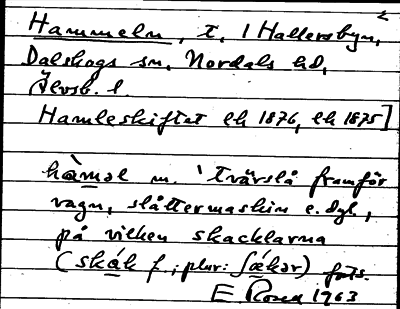 Hammeln, t, 1 Hallersbyn,
Dalskogs sn, Nordals hd,
Älvsb. l.
Hamleskiftet lh 1876, lh 1875]
hàməl m. 'tvärslå framför
vagn, slåttermaskin e. dyl.,
på vilken skacklarna
(skák f.; plur: ʃǽkər) fots.
E Rosen 1963